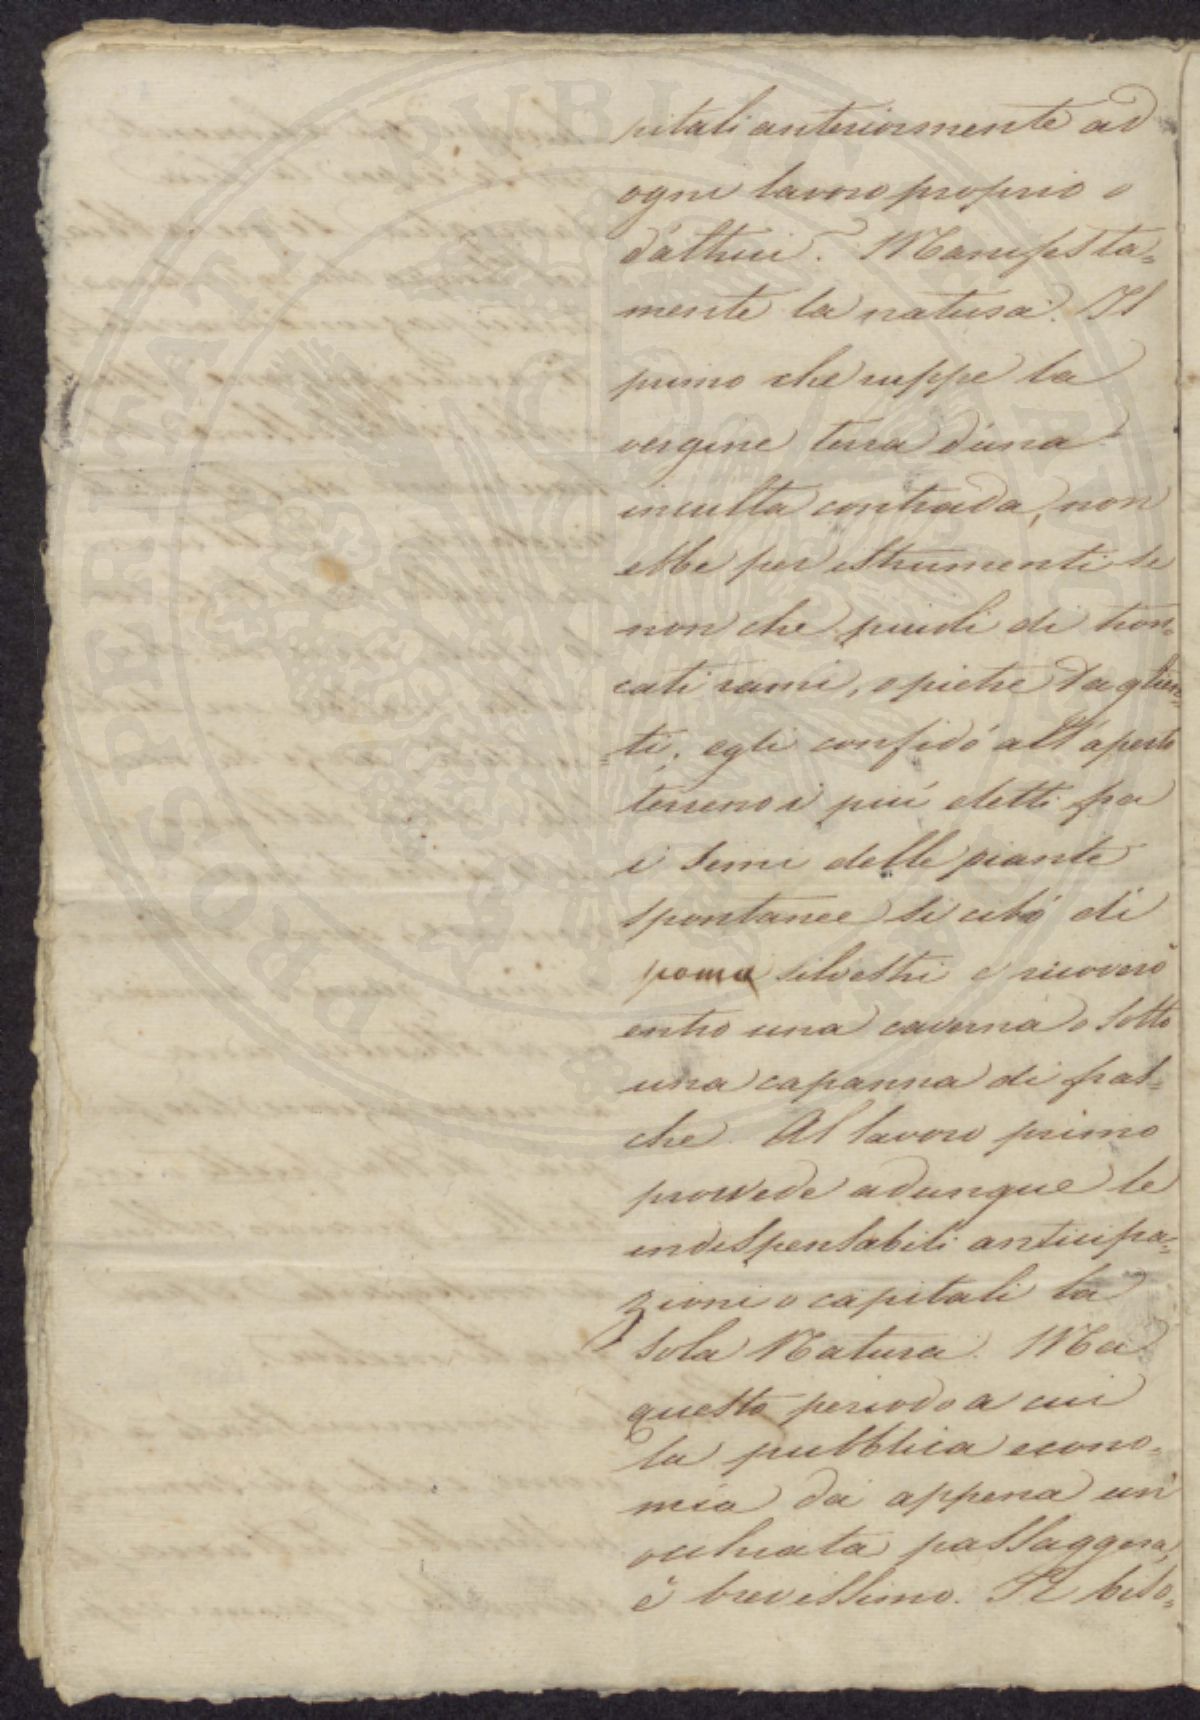 pitali anteriormente ad
ogni lavoro proprio o
d'altrui? Manifesta=
mente la natura. Il
primo che ruppe la
vergine terra d'una
inculta contrada, non
ebbe per istrumenti se
non che piuoli di tron=
cati rami, o pietre taglien=
=ti, egli confidó all'aperto
terreno i piú eletti fra
i semi delle piante
spontanee si cibó di
poma silvestri e ricoveró
entro una caverna o sotto
una capanna di fras=
che. Al lavoro primo
provvede adunque le
indispensabili anticipa=
zioni o capitali la
sola Natura. Ma
questo periodo a cui
la pubblica econo=
mia dá appena un'
occhiata passaggera,
é brevissimo. Il biso=
PROSPERITATI PUBLICAE